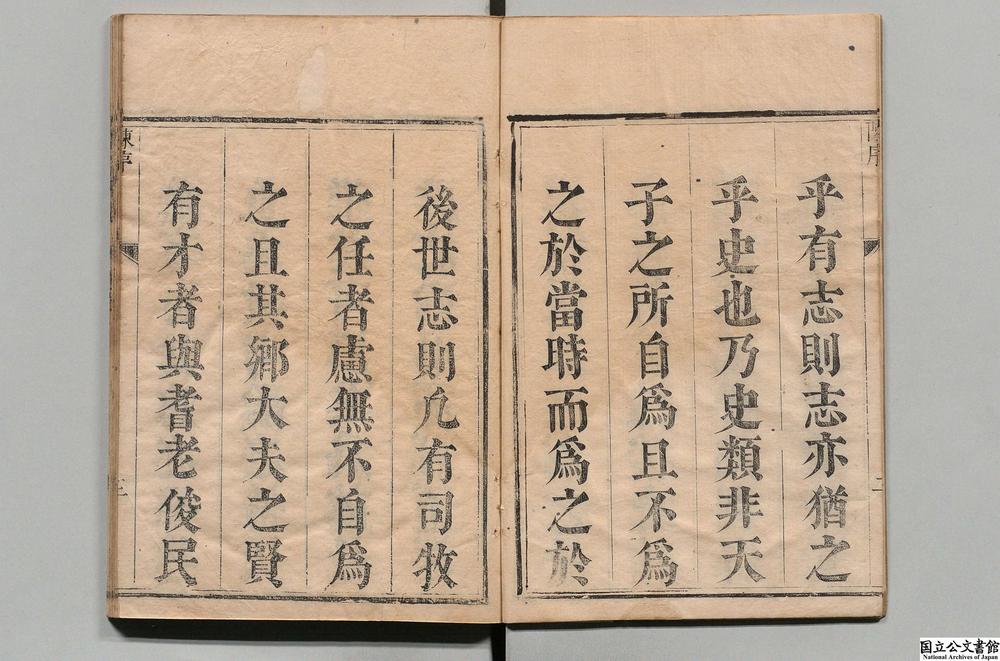 乎有志則志亦猶之
乎史也乃史類非天
子之所自爲且不爲
之於當時而爲之於
後世志則凡有司牧
之任者慮無不自爲
之且其鄉大夫之賢
有才者與耆老俊民
陳序
二
国立公文書館
National Archives of Japan